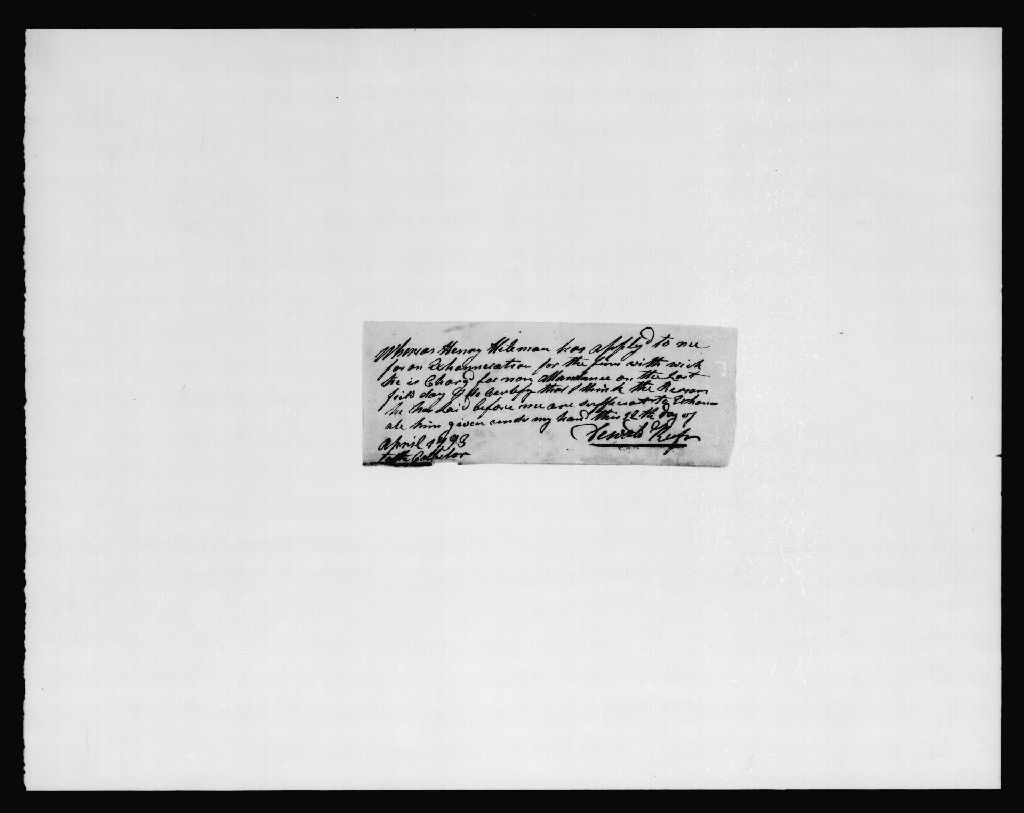 Whereas Henry Hileman has apply'd to me
for an Exhonneration for the fine with wich
he is Charg'd for non attandance on the Last
field day I do Certify that I think the Reasons
he has Laid before me are sufficient to Exhoner
ate him given under my hand this 12th day of
April 1793
to the Collector